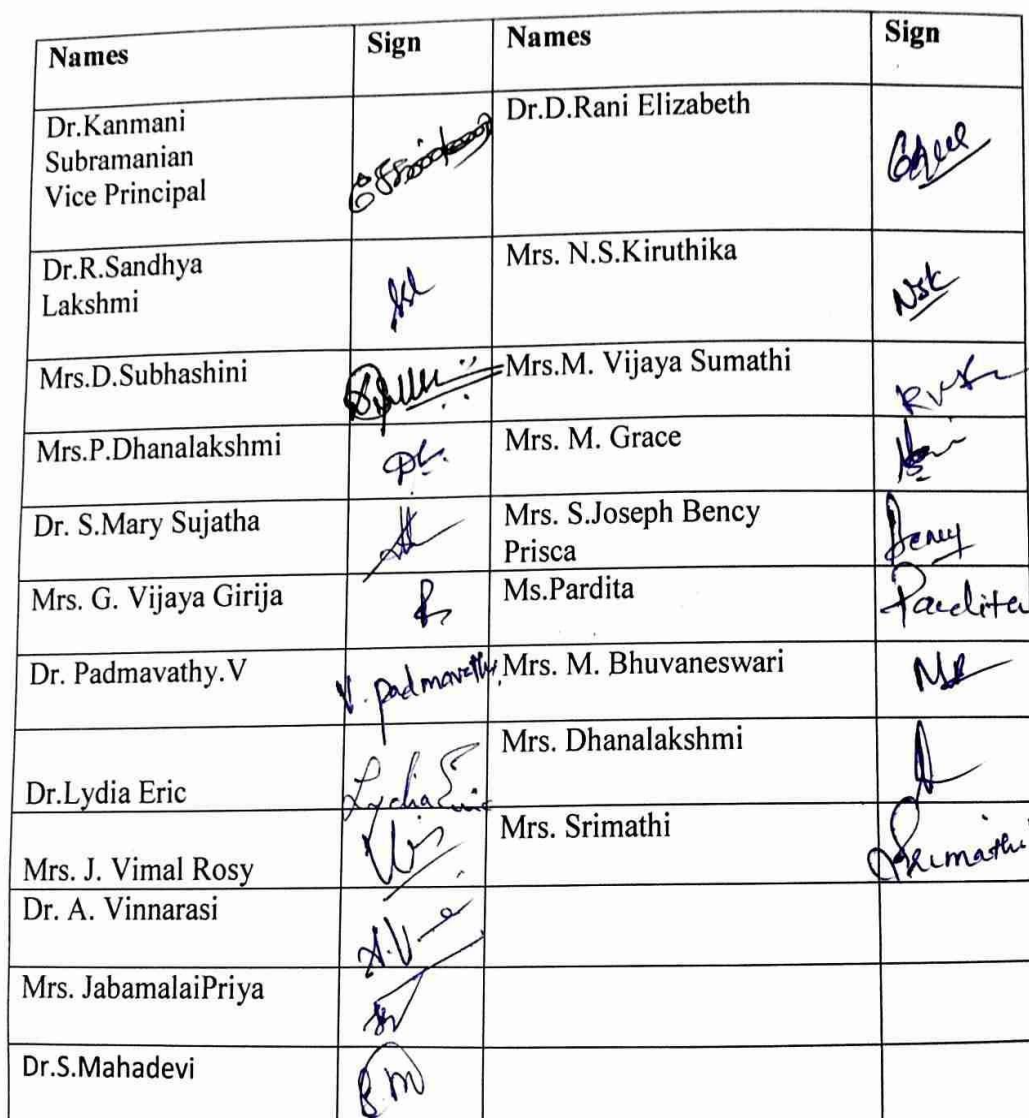 Names Sign Names Sign
Dr.Kanmani
Subramanian
Vice Principal
Dr.D.Rani Elizabeth
Dr.R.Sandhya
Lakshmi
Mrs. N.S.Kiruthika
Nsk
Mrs.D.Subhashini
Mrs.M. Vijaya Sumathi
Mrs.P.Dhanalakshmi
Mrs. M. Grace
Dr. S.Mary Sujatha
Mrs. S.Joseph Bency
Prisca
Bency
Mrs. G. Vijaya Girija
Ms.Pardita
Pardita
Dr. Padmavathy.V
V. Padmavathy
Mrs. M. Bhuvaneswari
Dr.Lydia Eric
Lydia Eric
Mrs. Dhanalakshmi
Mrs. J. Vimal Rosy
Mrs. Srimathi
Srimathi
Dr. A. Vinnarasi
A.V
Mrs. JabamalaiPriya
Dr.S.Mahadevi
S.M